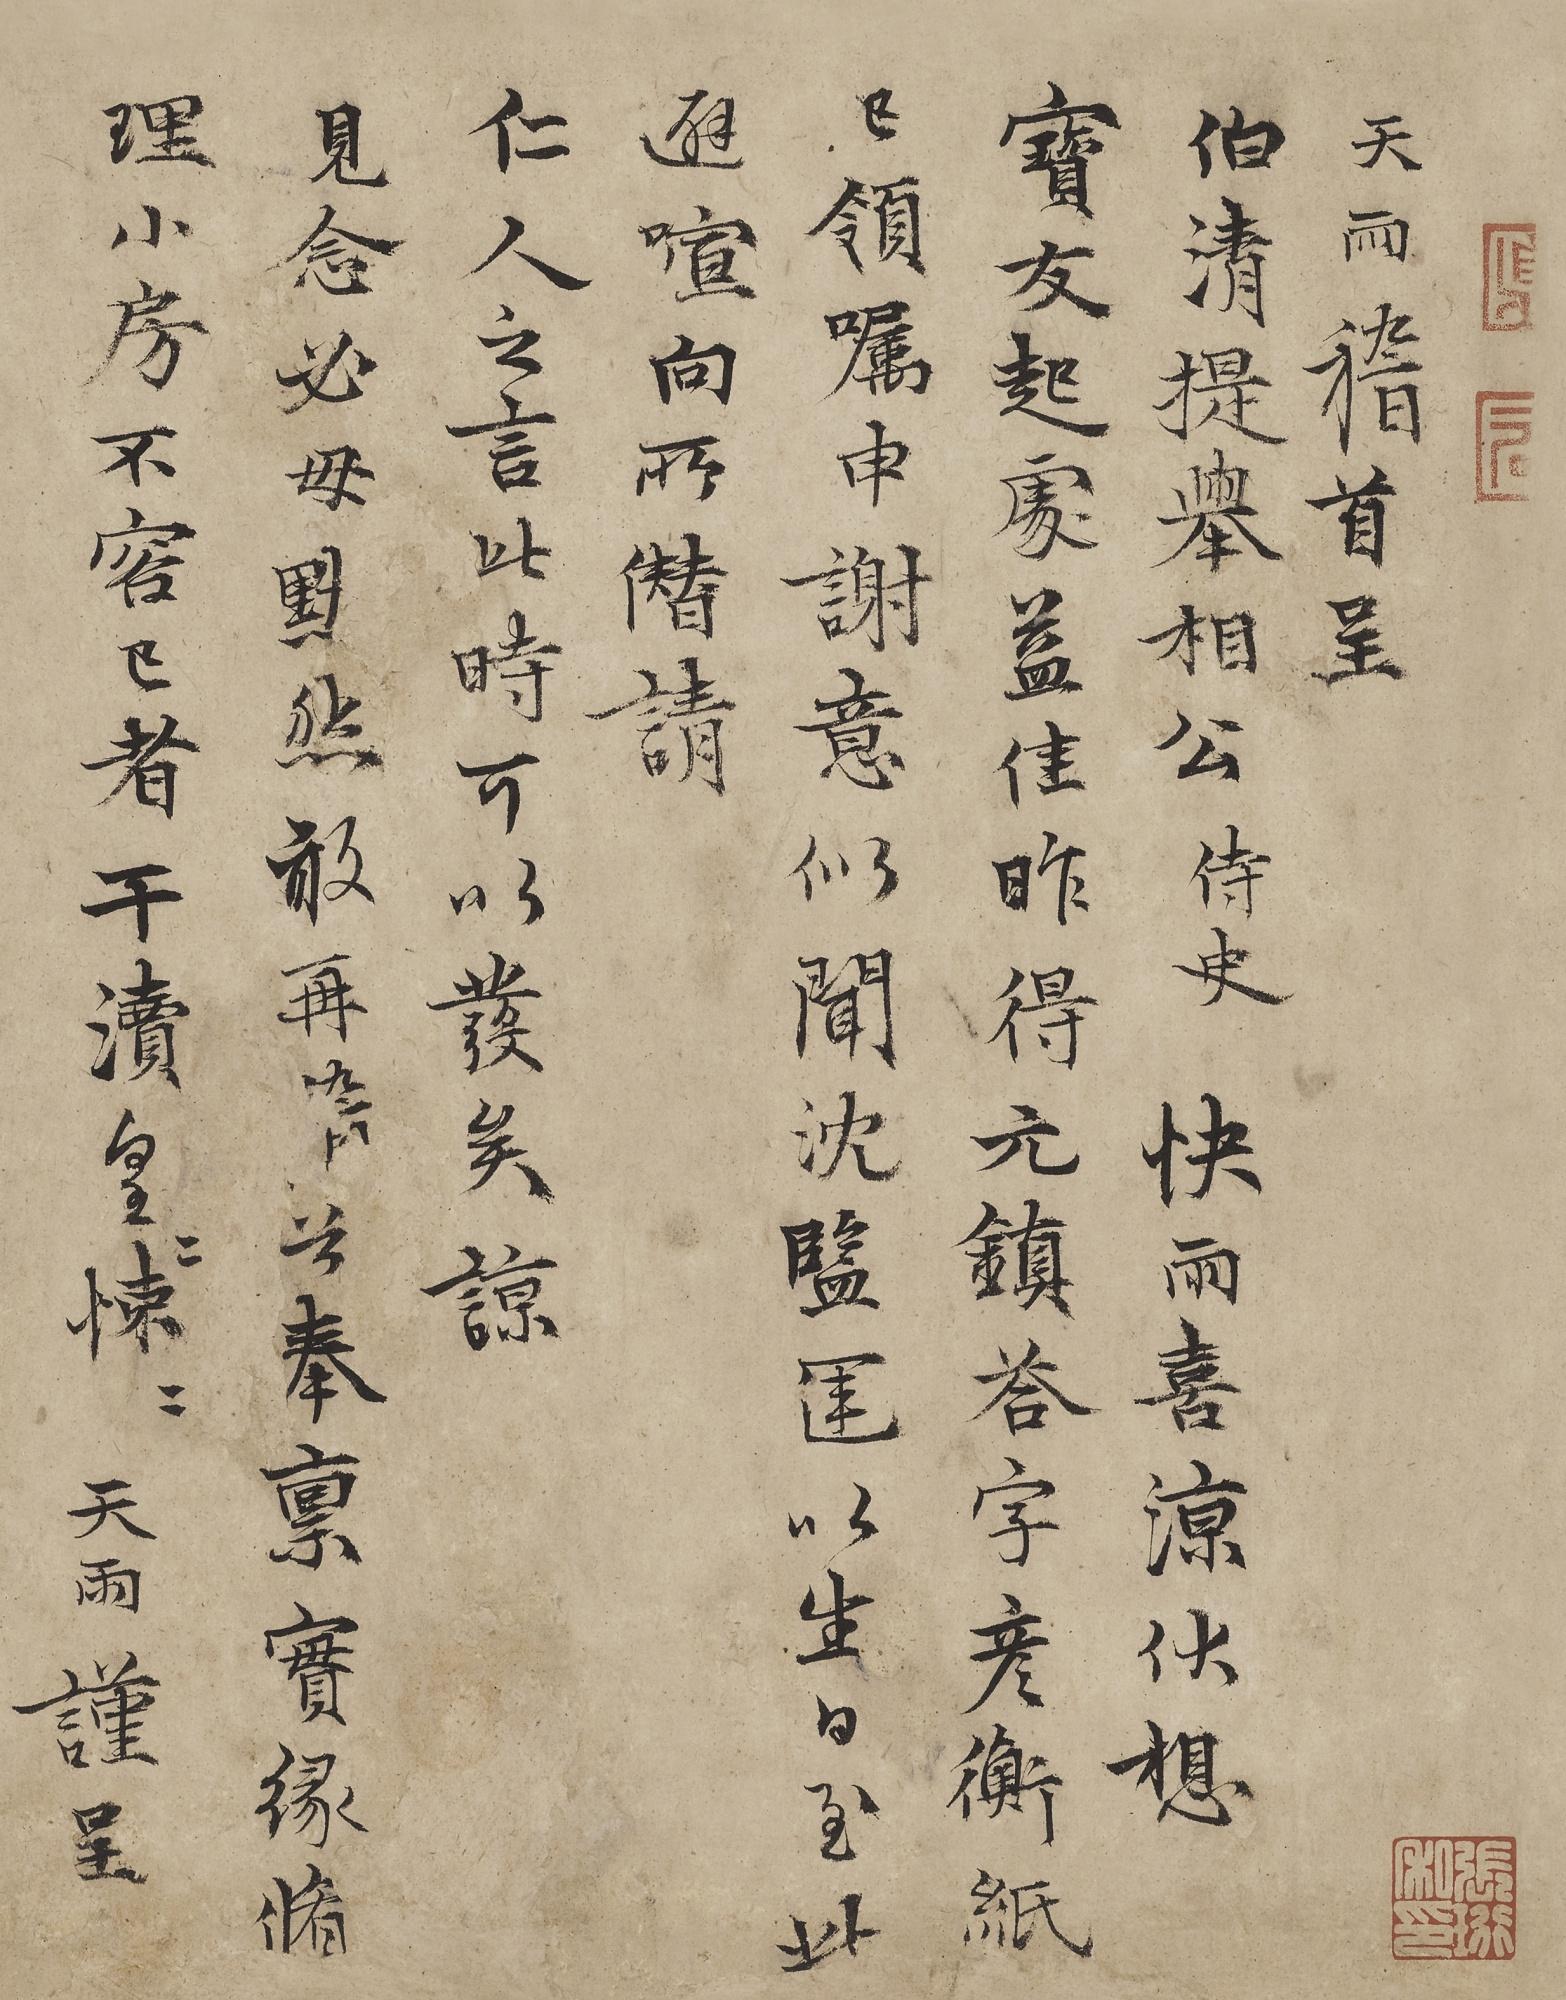 天雨稽首呈
伯清提舉相公侍史 快雨喜涼伏想
寶友起處益佳昨得元鎮荅字彥衡紙
已領囑申謝意似聞沈鹽運以生日至此
避喧向所僭請
仁人之言此時可以發矣諒
見念必毋默然敢再瀆兹奉稟實緣脩
理小房不容已者干瀆皇〻悚〻 天雨謹呈